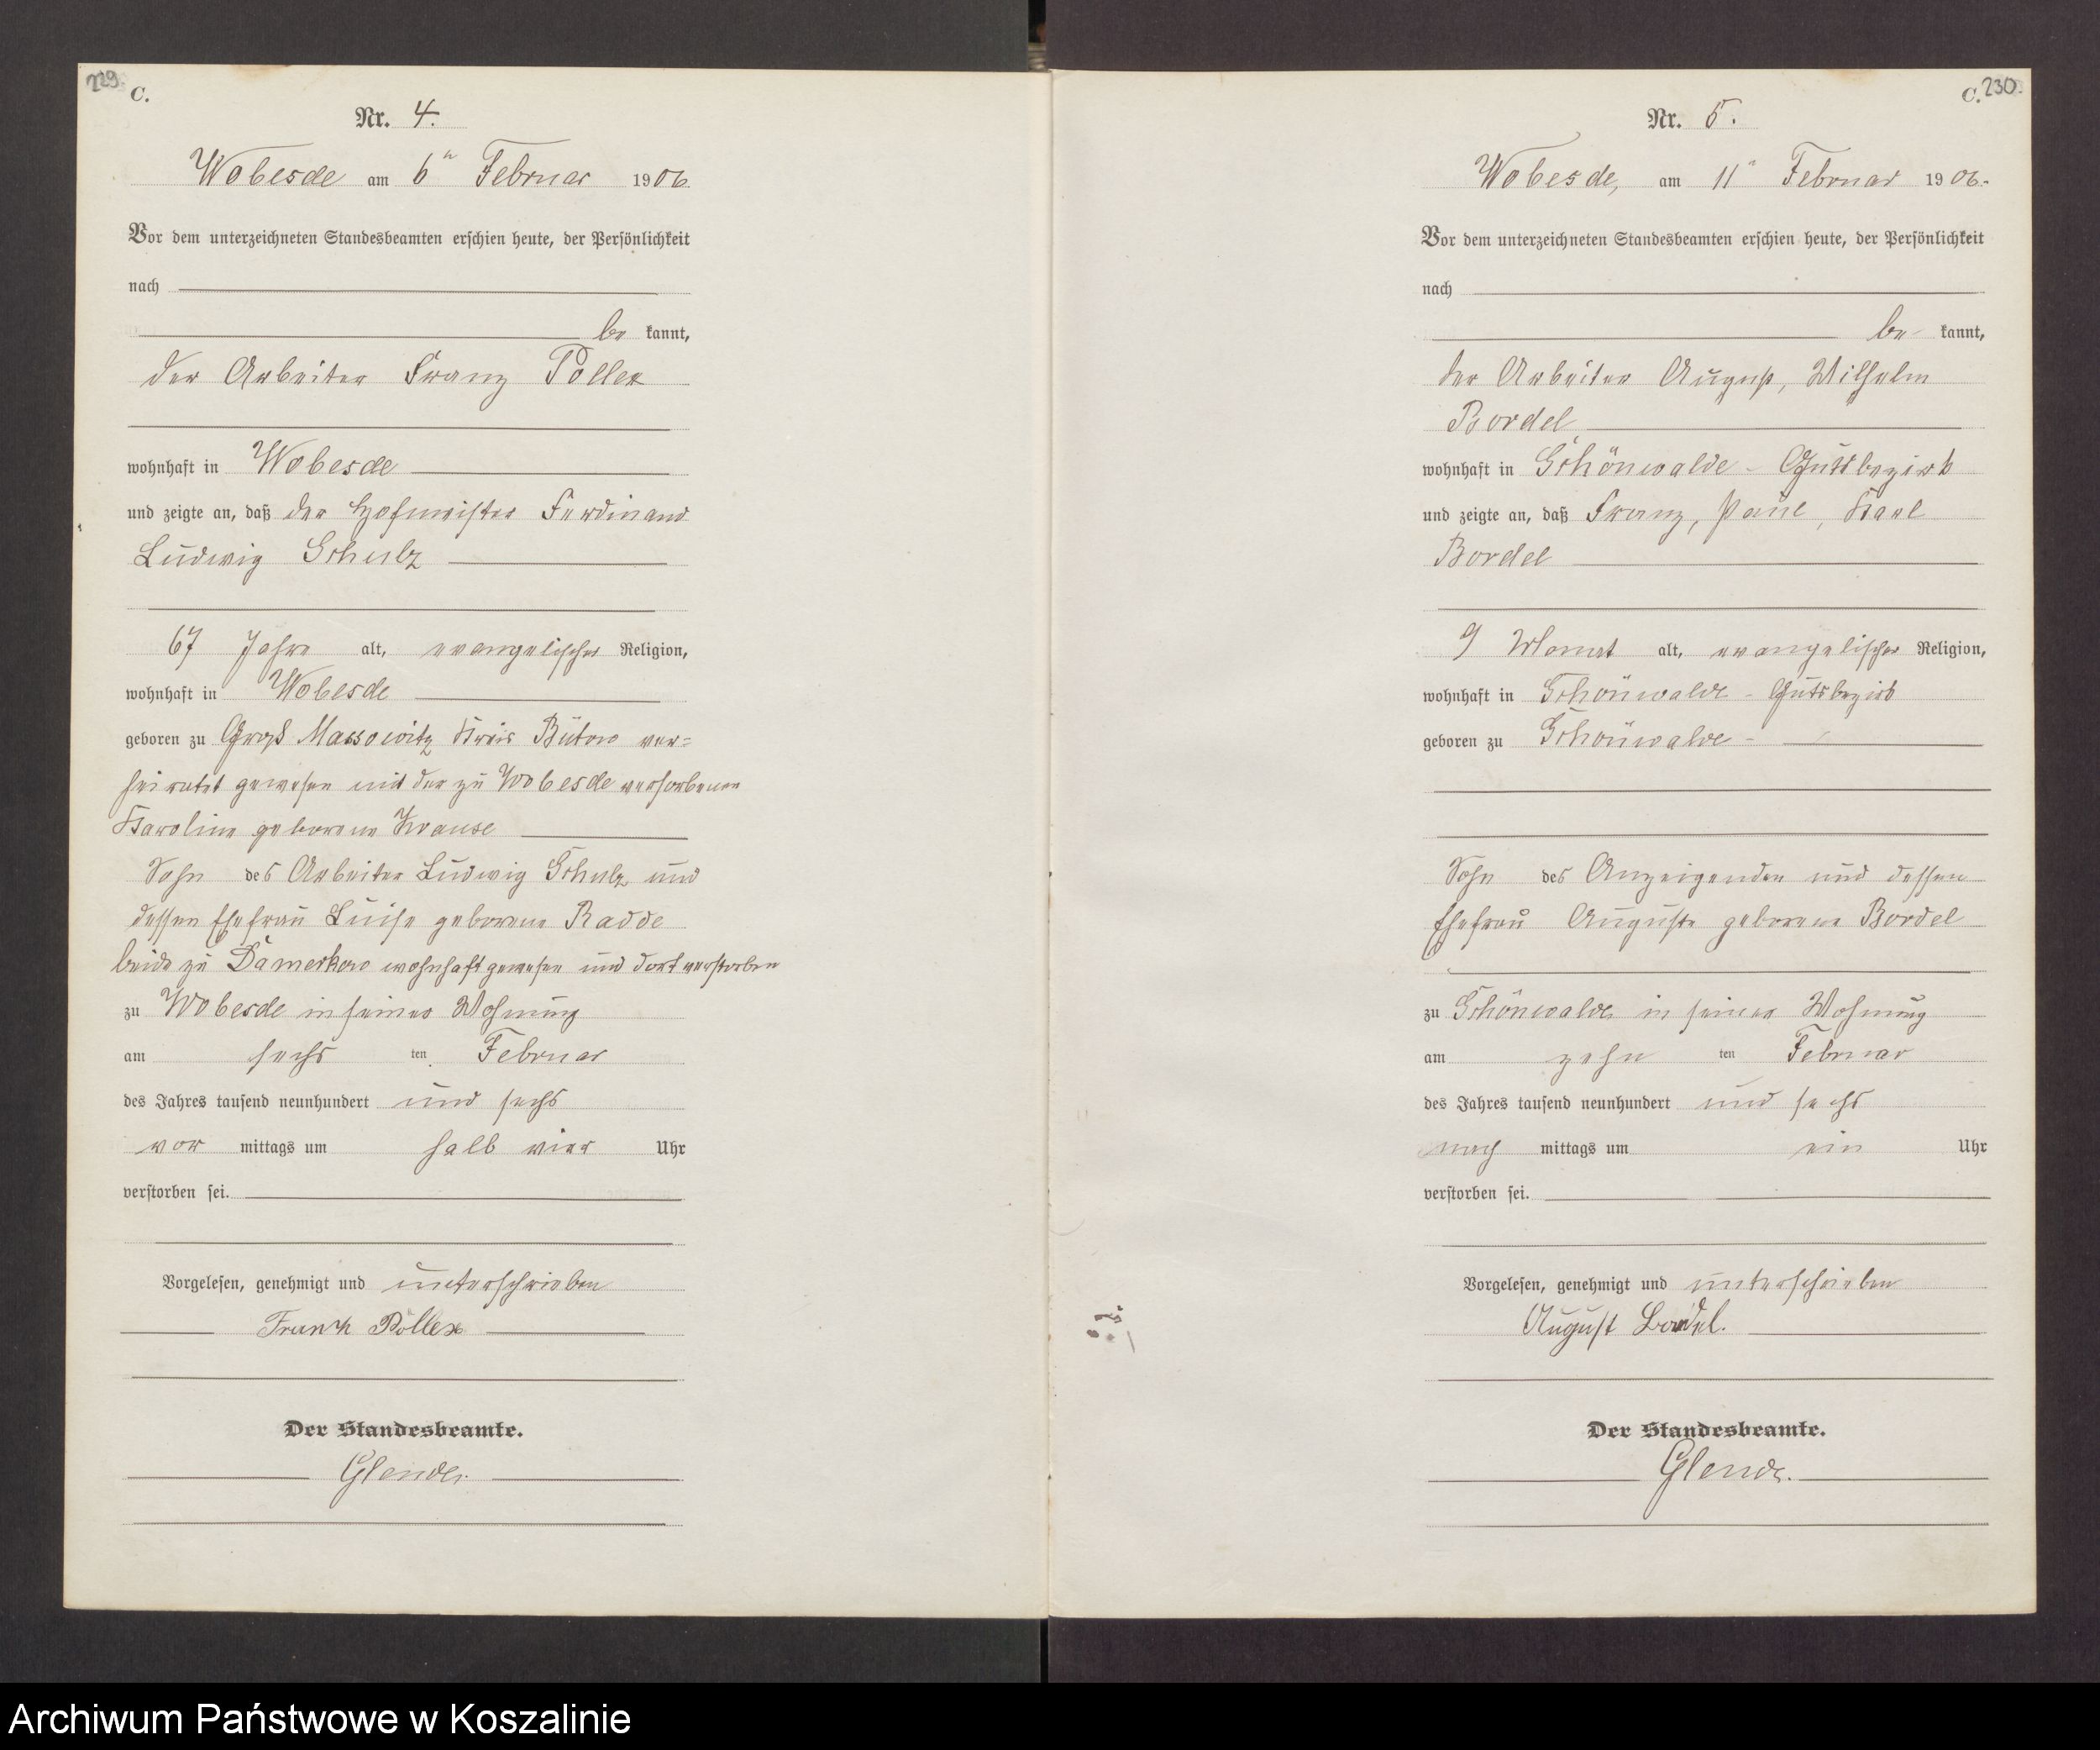 229.
C.
Nr. 4.
Wobesde am 6ten Februar 1906
Vor dem unterzeichneten Standesbeamten erschien heute, der Persönlichkeit
nach
be kannt,
der Arbeiter Franz Pollex
wohnhaft in Wobesde
und zeigte an, daß der Hofmeister Ferdinand
Ludwig Schulz
67 Jahre alt, evangelischer Religion,
wohnhaft in Wobesde
geboren zu Groß Massowitz Kreis Bütow ver=
heiratet gewesen mit der zu Wobesde verstorbenen
Karoline geborene Krause
Sohn des Arbeiter Ludwig Schulz und
dessen Ehefrau Luise geborene Radde
beide zu Damerkow wohnhaft gewesen und dort verstorben
zu Wobesde in seiner Wohnung
am sechs ten Februar
des Jahres tausend neunhundert und sechs
vor mittags um halb vier Uhr
verstorben sei.
Vorgelesen, genehmigt und unterschrieben
Pollex
Der Standesbeamte.
C. 230.
Nr. 5.
Wobesde, am 11 Februar 1906.
Vor dem unterzeichneten Standesbeamten erschien heute, der Persönlichkeit
nach
be kannt,
der Arbeiter August, Wilhelm
Bordel
wohnhaft in Schönwalde - Gutsbezirk
und zeigte an, daß Franz, Paul, Karl
Bordel
9 Monat alt, evangelischer Religion,
wohnhaft in Schönwalde - Gutsbezirk
geboren zu Schönwalde -
Sohn des Anzeigenden und dessen
Ehefrau Auguste geborene Bordel
zu Schönwalde in seiner Wohnung
am zehn ten Februar
des Jahres tausend neunhundert und sechs
nach mittags um ein Uhr
verstorben sei.
Vorgelesen, genehmigt und unterschrieben
August Bordel.
Der Standesbeamte.
Archiwum Państwowe w Koszalinie